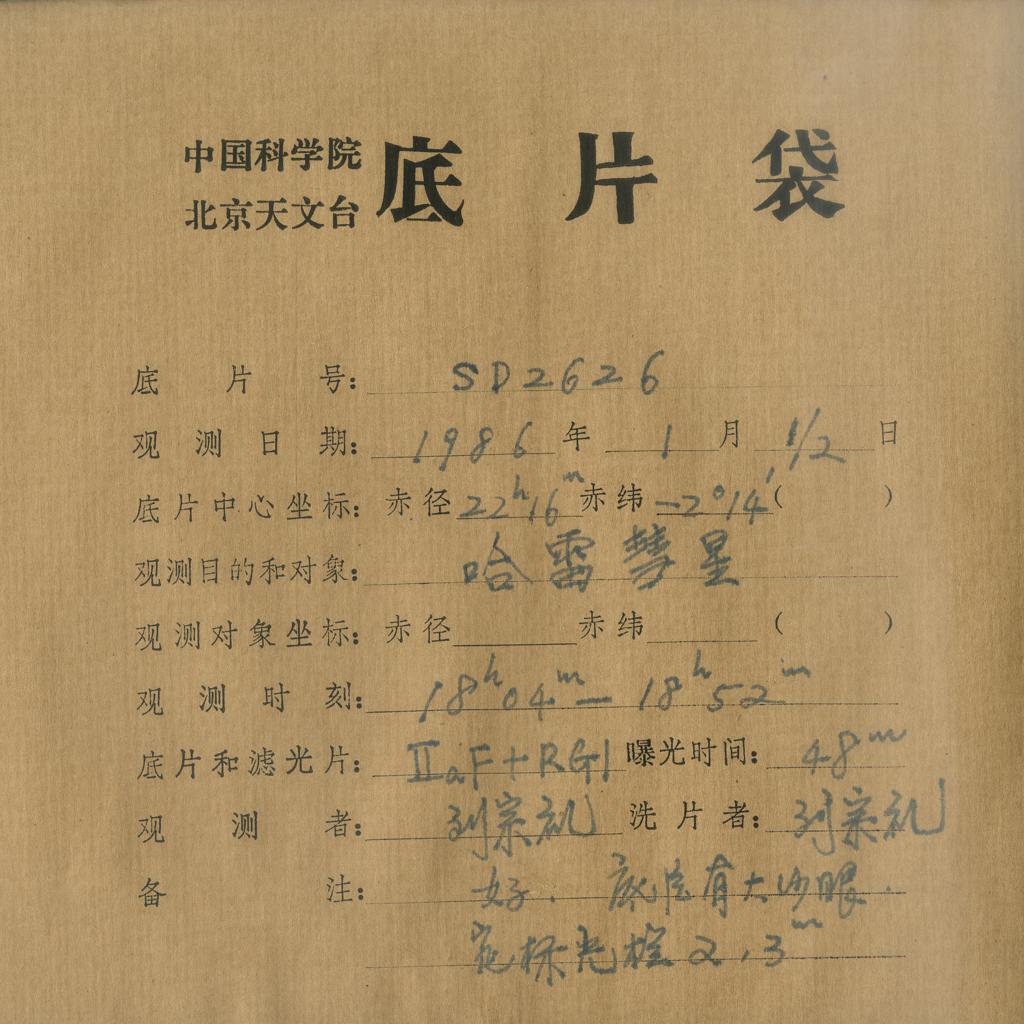 中国科学院
北京天文台
底片袋
底片号: SD2626
观测日期: 1986年 1月 1/2日
底片中心坐标: 赤径 22ʰ16ᵐ 赤纬 -2°14′( )
观测目的和对象: 哈雷彗星
观测对象坐标: 赤径 赤纬 ( )
观测时刻: 18ʰ04ᵐ — 18ʰ52ᵐ
底片和滤光片: ⅡaF+RG1 曝光时间: 48ᵐ
观测者: 刘宗礼 洗片者: 刘宗礼
备注: 好. 底片有大沙眼.
标光 2,3ᵐ